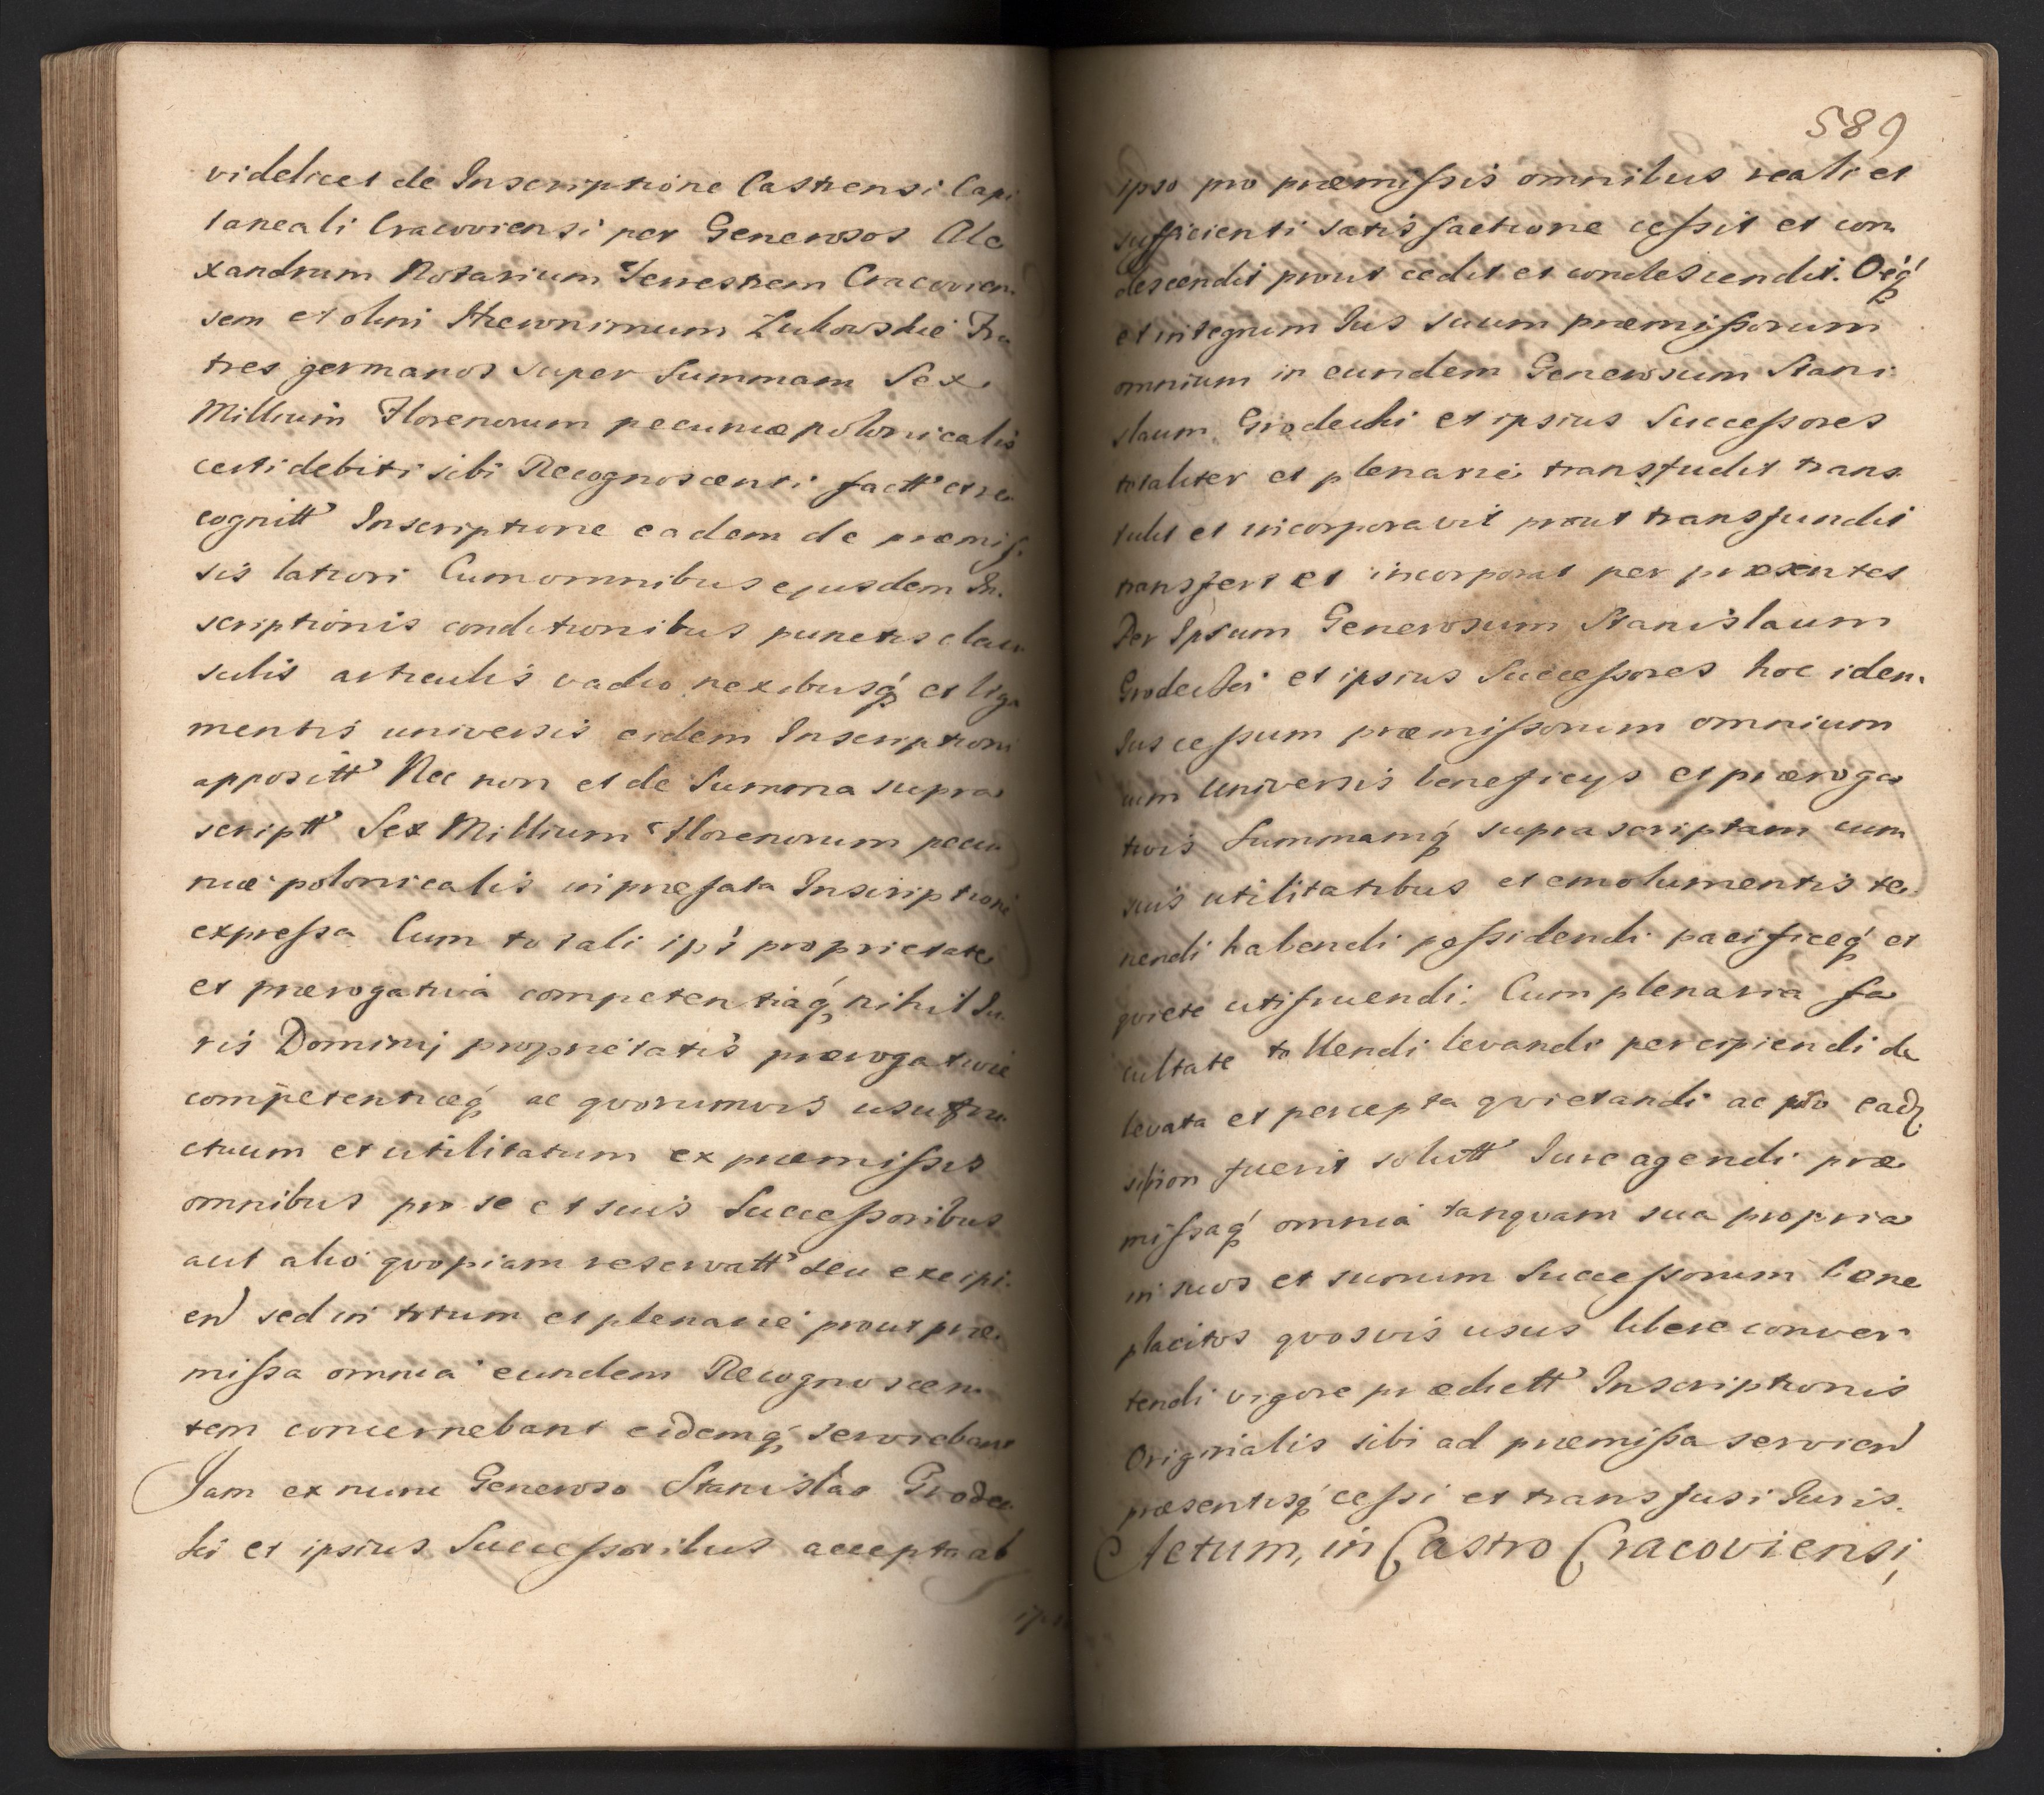 videlicet de Inscriptione Castrensi Capi
taneali Cracoviensi per Generosos Ale
xandrum Notarium Terrestrem Cracovien
sem et olim Hieronimum Zukowskie Fra
tres germanos super Summam Sex
Millium Florenorum pecuniæ polonicalis
certi debiti sibi Recognoscenti factt et re
cognitt Inscriptione eadem de præmis
sis latiori Cum omnibus ejusdem In
scriptionis conditionibus punctis clau
sulis articulis vadio nexibusq́ et liga
mentis universis eidem Inscriptioni
appositt Nec non et de Summa supra
scriptt Sex Millium Florenorum pecu
niæ polonicalis in præfata Inscriptione
expressa Cum totali ipś proprietate
et prærogativa competentiaq́ nihil Ju
ris Dominij proprietatis prærogativæ
competentiæq́ ac qvorumvis usufru
ctuum et utilitatum ex præmissis
omnibus pro se et suis Successoribus
aut alio qvopiam reservatt seu excipi
end sed in totum et plenarie prout præ
missa omnia eundem Recognoscen
tem concernebant eidemq́ serviebant
Jam ex nunc Generoso Stanislao Grodec
ki et ipsius Successoribus accepta ab
589
ipso pro præmissis omnibus reali et
sufficienti satisfactione cessit et con
descendit prout cedit et condescendit. Oeq́
et integrum Jus suum præmissorum
omnium in eundem Generosum Stani
slaum Grodecki et ipsius Successores
totaliter et plenarie transfudit trans
tulit et incorporavit prout transfundit
transfert et incorporat per præsentes
Per Ipsum Generosum Stanislaum
Grodecki et ipsius Successores hoc idem
Jus cessum præmissorum omnium
cum universis beneficys et præroga
tivis Summamq́ suprascriptam cum
suis utilitatibus et emolumentis te
nendi habendi possidendi pacificeq́ et
qviete utifruendi. Cum plenaria fa
cultate tollendi levandi percipiendi de
levata et percepta qvietandi ac pro ead
si non fuerit solutt Jure agendi præ
missaq́ omnia tanqvam sua propria
in suos et suorum Successorum bene
placitos qvosvis usus libere conver
tendi vigore prædictt Inscriptionis
Originalis sibi ad præmissa servien
præsentisq́ cessi et transfusi Juris.
Actum, in Castro Cracoviensi,